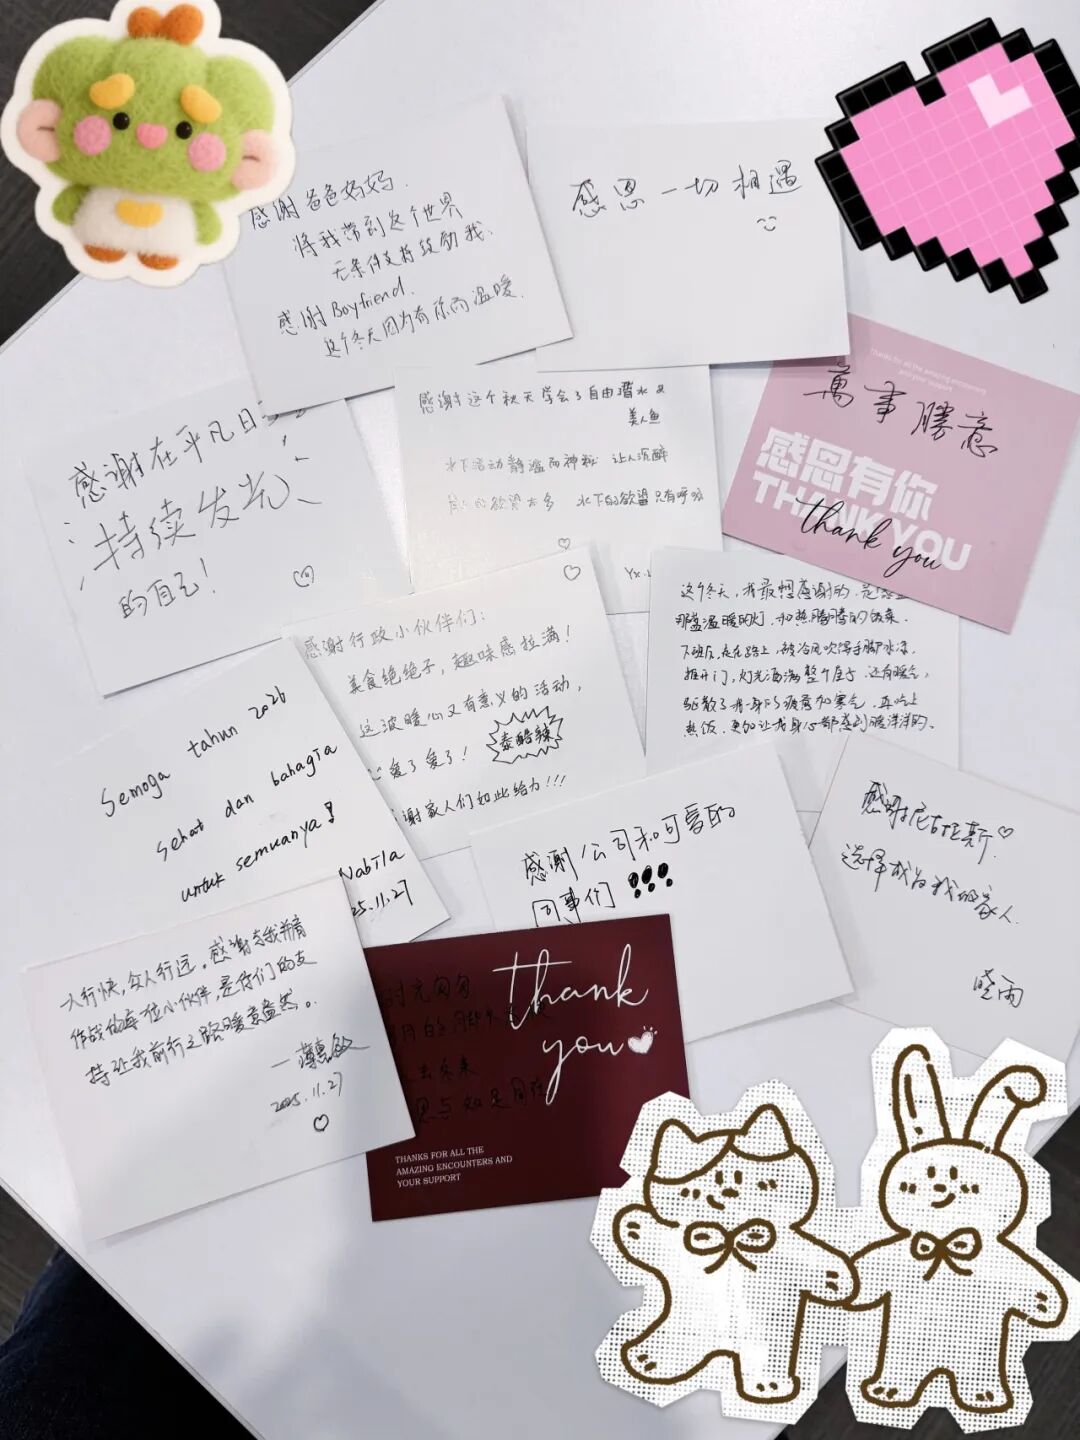 感谢爸爸妈妈.
将我带到这个世界
无条件支持鼓励我、
感谢Boyfriend.
这个冬天因为有你而温暖.
感恩一切相遇
感谢在平凡日
持续发光
的自己!
感谢这个秋天学会了自由潜水&
美人鱼
水下活动静谧而神秘 让人沉醉
的欲望太多 水下的欲望只有呼吸
Thanks for all the amazing encounters
and your support
萬事勝意
感恩有你
THANK YOU
thank you
感谢行政小伙伴们:
美食绝绝子,趣味感拉满!
这波暖心又有意义的活动,
爱了爱了! 泰酷辣
谢家人们如此给力!!!
这个冬天,我最想感谢的,是
那盏温暖的灯,和热腾腾的饭菜.
下班后,走在路上,被冷风吹得手脚冰凉,
推开门,灯光洒满整个屋子,还有暖气,
驱散了我一身的疲惫和寒气,再吃上
热饭,更加让我身心都感到暖洋洋的.
Semoga tahun 2026
sehat dan bahagia
untuk semuanya!
Nabila
25.11.27
感谢公司和可爱的
同事们!!!
感谢尼古拉斯.
选择成为我的家人.
晓雨
人行快,众人行远,感谢与我并肩
作战的每一位小伙伴,是你们的支
持让我前行之路暖意盎然。
2025.11.27
时光匆匆
去冬来
thank
you
THANKS FOR ALL THE
AMAZING ENCOUNTERS AND
YOUR SUPPORT